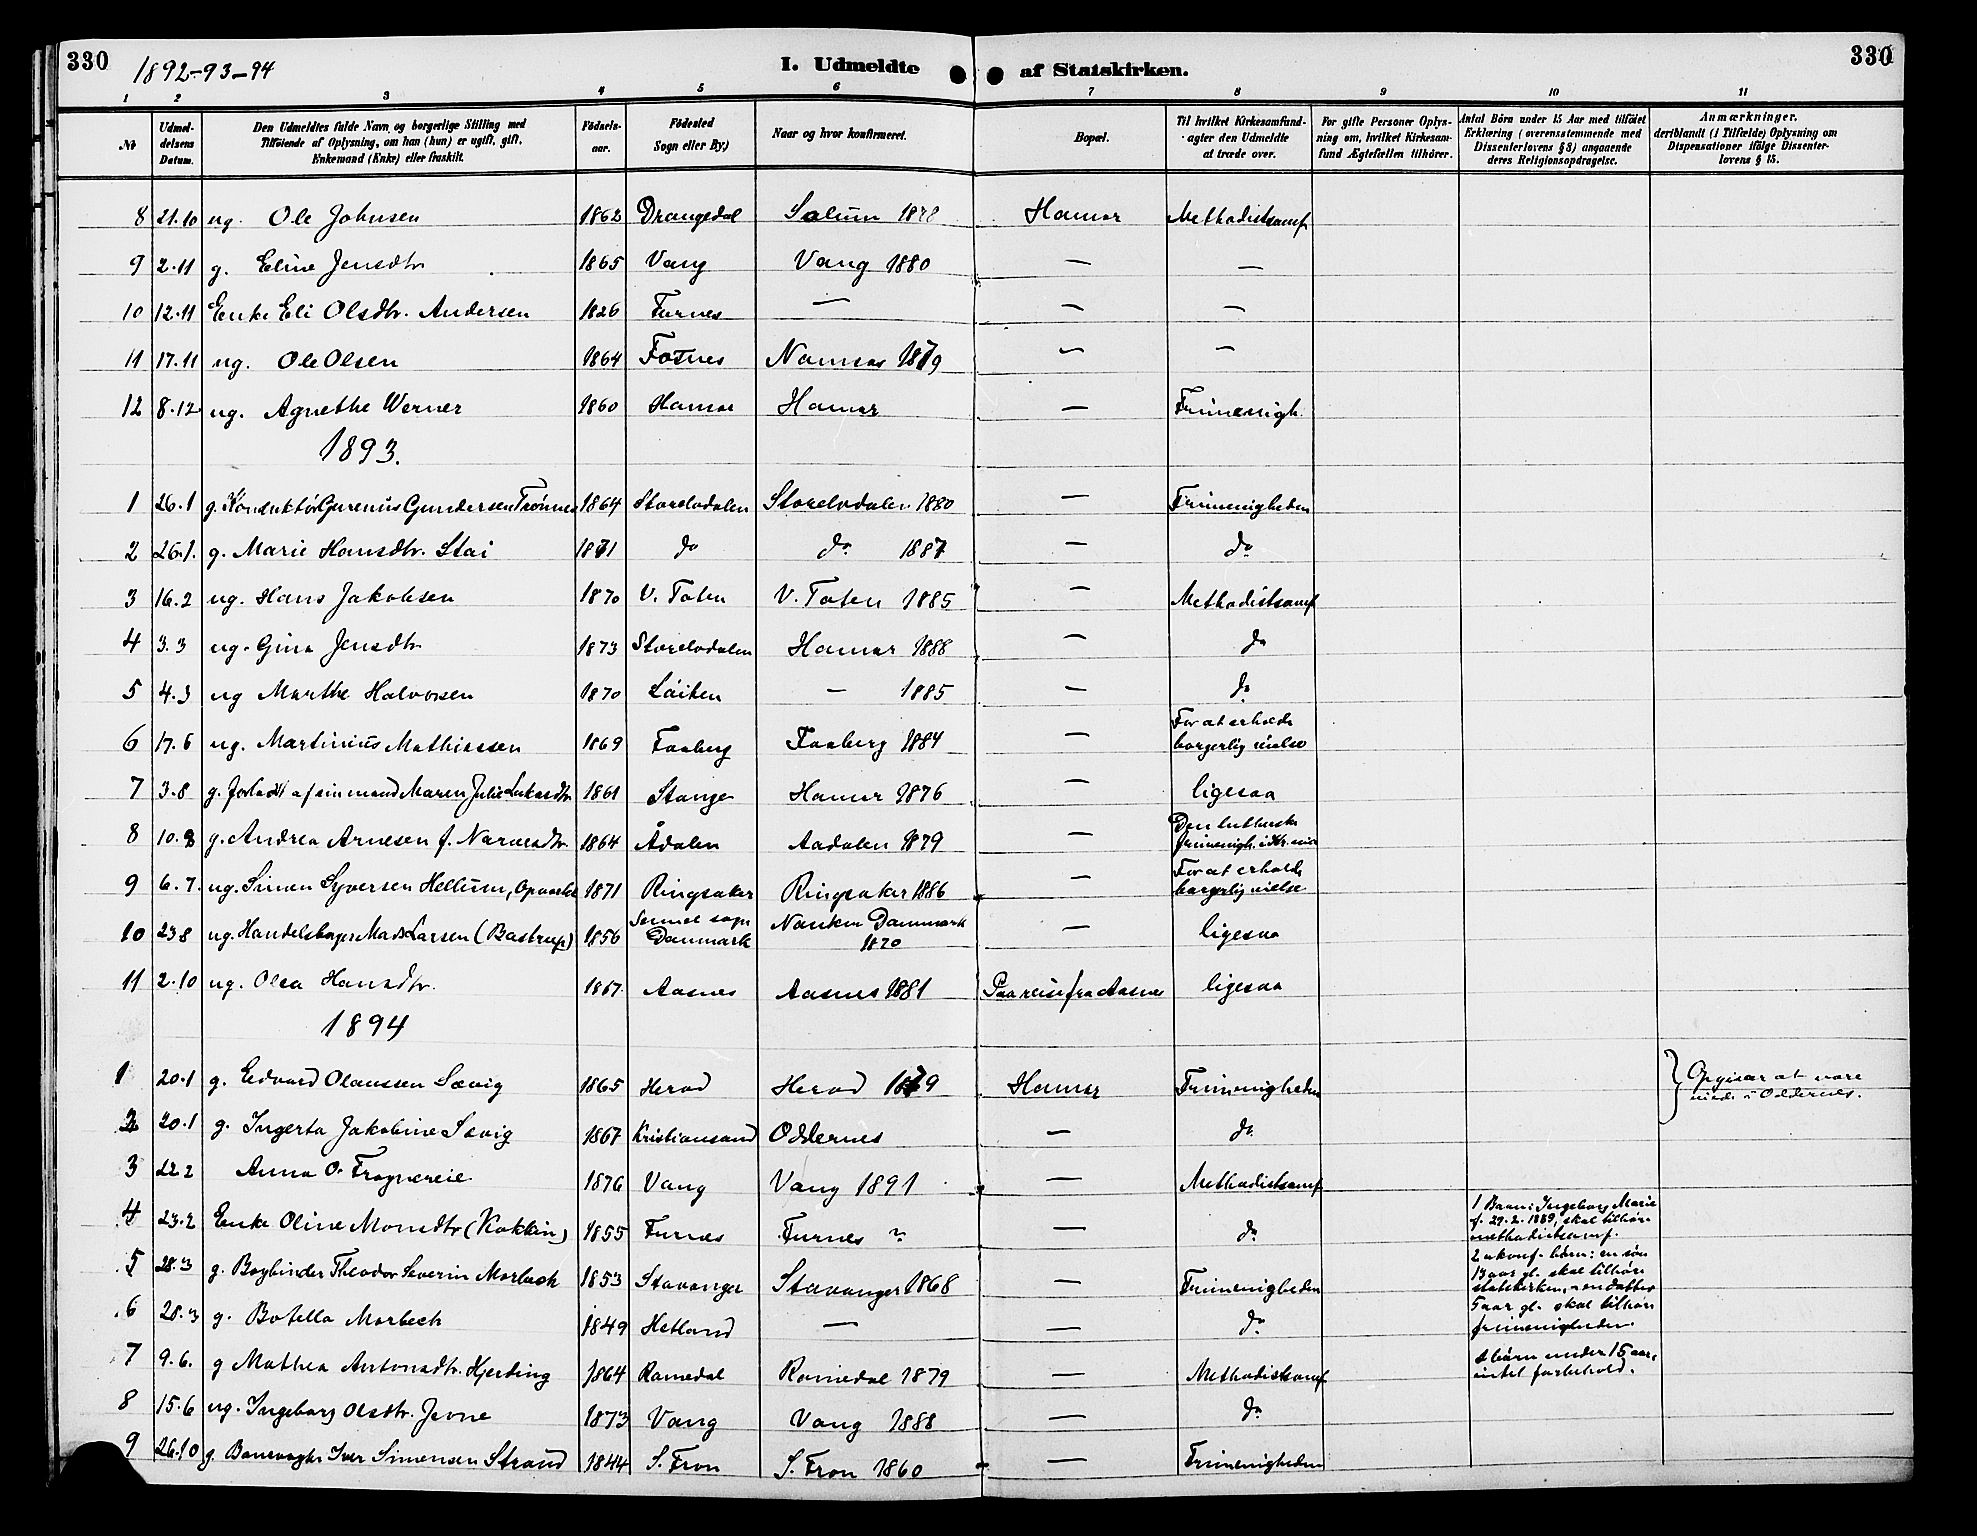 330
1892-93-94
I. Udmeldte af Statskirken.
330
1 2 3 4 5 6 7 8 9 10 11
№
Udmeldelsens Datum.
Den Udmeldtes fulde Navn og borgerlige Stilling med
Tilføiende af Oplysning, om han (hun) er ugift, gift,
Enkemand (Enke) eller fraskilt.
Fødselsaar.
Fødested
Sogn eller By.)
Naar og hvor konfirmeret.
Bopæl.
Til hvilket Kirkesamfund
agter den Udmeldte
at træde over.
For gifte Personer Oplysning om, hvilket Kirkesamfund Ægtefællen tilhører.
Antal Børn under 15 Aar med tilføiet
Erklæring (overensstemmende med
Dissenterlovens § 8) angaaende
deres Religionsopdragelse.
Anmærkninger,
deriblandt (i Tilfælde) Oplysning om
Dispensationer ifølge Dissenterlovens § 15.
8 21.10 ug. Ole Johnsen 1862 Drangedal Solum 1878 Hamar Methodistsamf
9 2.11 g. Eline Jensdtr 1865 Vang Vang 1880 — —
10 12.11 Enke Eli Olsdtr. Andersen 1826 Furnes — — —
11 17.11 ug. Ole Olsen 1864 Fosnes Namsos 1879 — —
12 8.12 ug. Agnethe Werner 1860 Hamar Hamar — Frimenigh.
1893.
1 26.1 g. Konduktør Gerenius Gundersen Trønnes 1864 Storelvdalen Storelvdalen 1880 — Frimenigheden
2 26.1. g. Marie Hansdtr. Stai 1871 do do 1887 — do
3 16.2 ug. Hans Jakobsen 1870 V. Toten V. Toten 1885 — Methodistsamf
4 3.3 ug. Gina Jensdtr 1873 Storelvdalen Hamar 1888 — do
5 4.3 ug Marthe Halvorsen 1870 Løiten — 1885 — do
6 17.6 ug. Martinius Mathiassen 1869 Faaberg Faaberg 1884 — For at erholde borgerlig vielse
7 3.8 g. forladt af sin mand Maren Julie Lukasdtr 1861 Stange Hamar 1876 — ligesaa
8 10.8 g. Andrea Arnesen f. Narvesdtr. 1864 Ådalen Aadalen 1879 — Den lutherske frimenigh. i Kr.ania
9 6.7. ug. Simen Syversen Hellum, 1871 Ringsaker Ringsaker 1886 — For at erholde borgerlig vielse
10 23.8 ug. Handelsborger Mads Larsen (Bastrup) 1856 sogn Danmark Danmark 1870 — ligesaa
11 2.10 ug. Olea Hansdtr. 1867. Aasnes Aasnes 1881 Paa reise fra Aasnes ligesaa
1894
1 20.1 g. Edvard Olaussen Sævig 1865 Herad Herad 1879 Hamar Frimenigheden } Opgiver at være viede i Oddernes.
2 20.1 g. Ingerta Jakobine Sævig 1867 Kristiansand Oddernes — do
3 22.2 Anna O. Frognereie 1876 Vang Vang 1891 — Methodistsamf
4 23.2 Enke Oline Monsdtr (Kokkin) 1855 Furnes Furnes ? — do 1 Barn: Ingeborg Marie f. 29.2.1889, skal tilhøre methodistsamf.
5 28.3 g. Bogbinder Theodor Severin Morbech 1853 Stavanger Stavanger 1868 — Frimenigheden 2 ukonf. børn: en søn 13 aar gl. skal tilhøre statskirken, en datter 5 aar gl. skal tilhøre frimenigheden.
6 28.3 g. Botella Morbech 1849 Hetland — — do
7 9.6. g Mathea Antonsdtr. Hjerding 1864 Romedal Romedal 1879 — Methodistsamf børn under 15 aar, intet forbehold.
8 15.6 ug. Ingeborg Olsdtr. Jevne 1873 Vang Vang 1888 — do
9 26.10 g. Banevogter Iver Simensen Strand 1844 S. Fron S. Fron 1860 — Frimenigheden